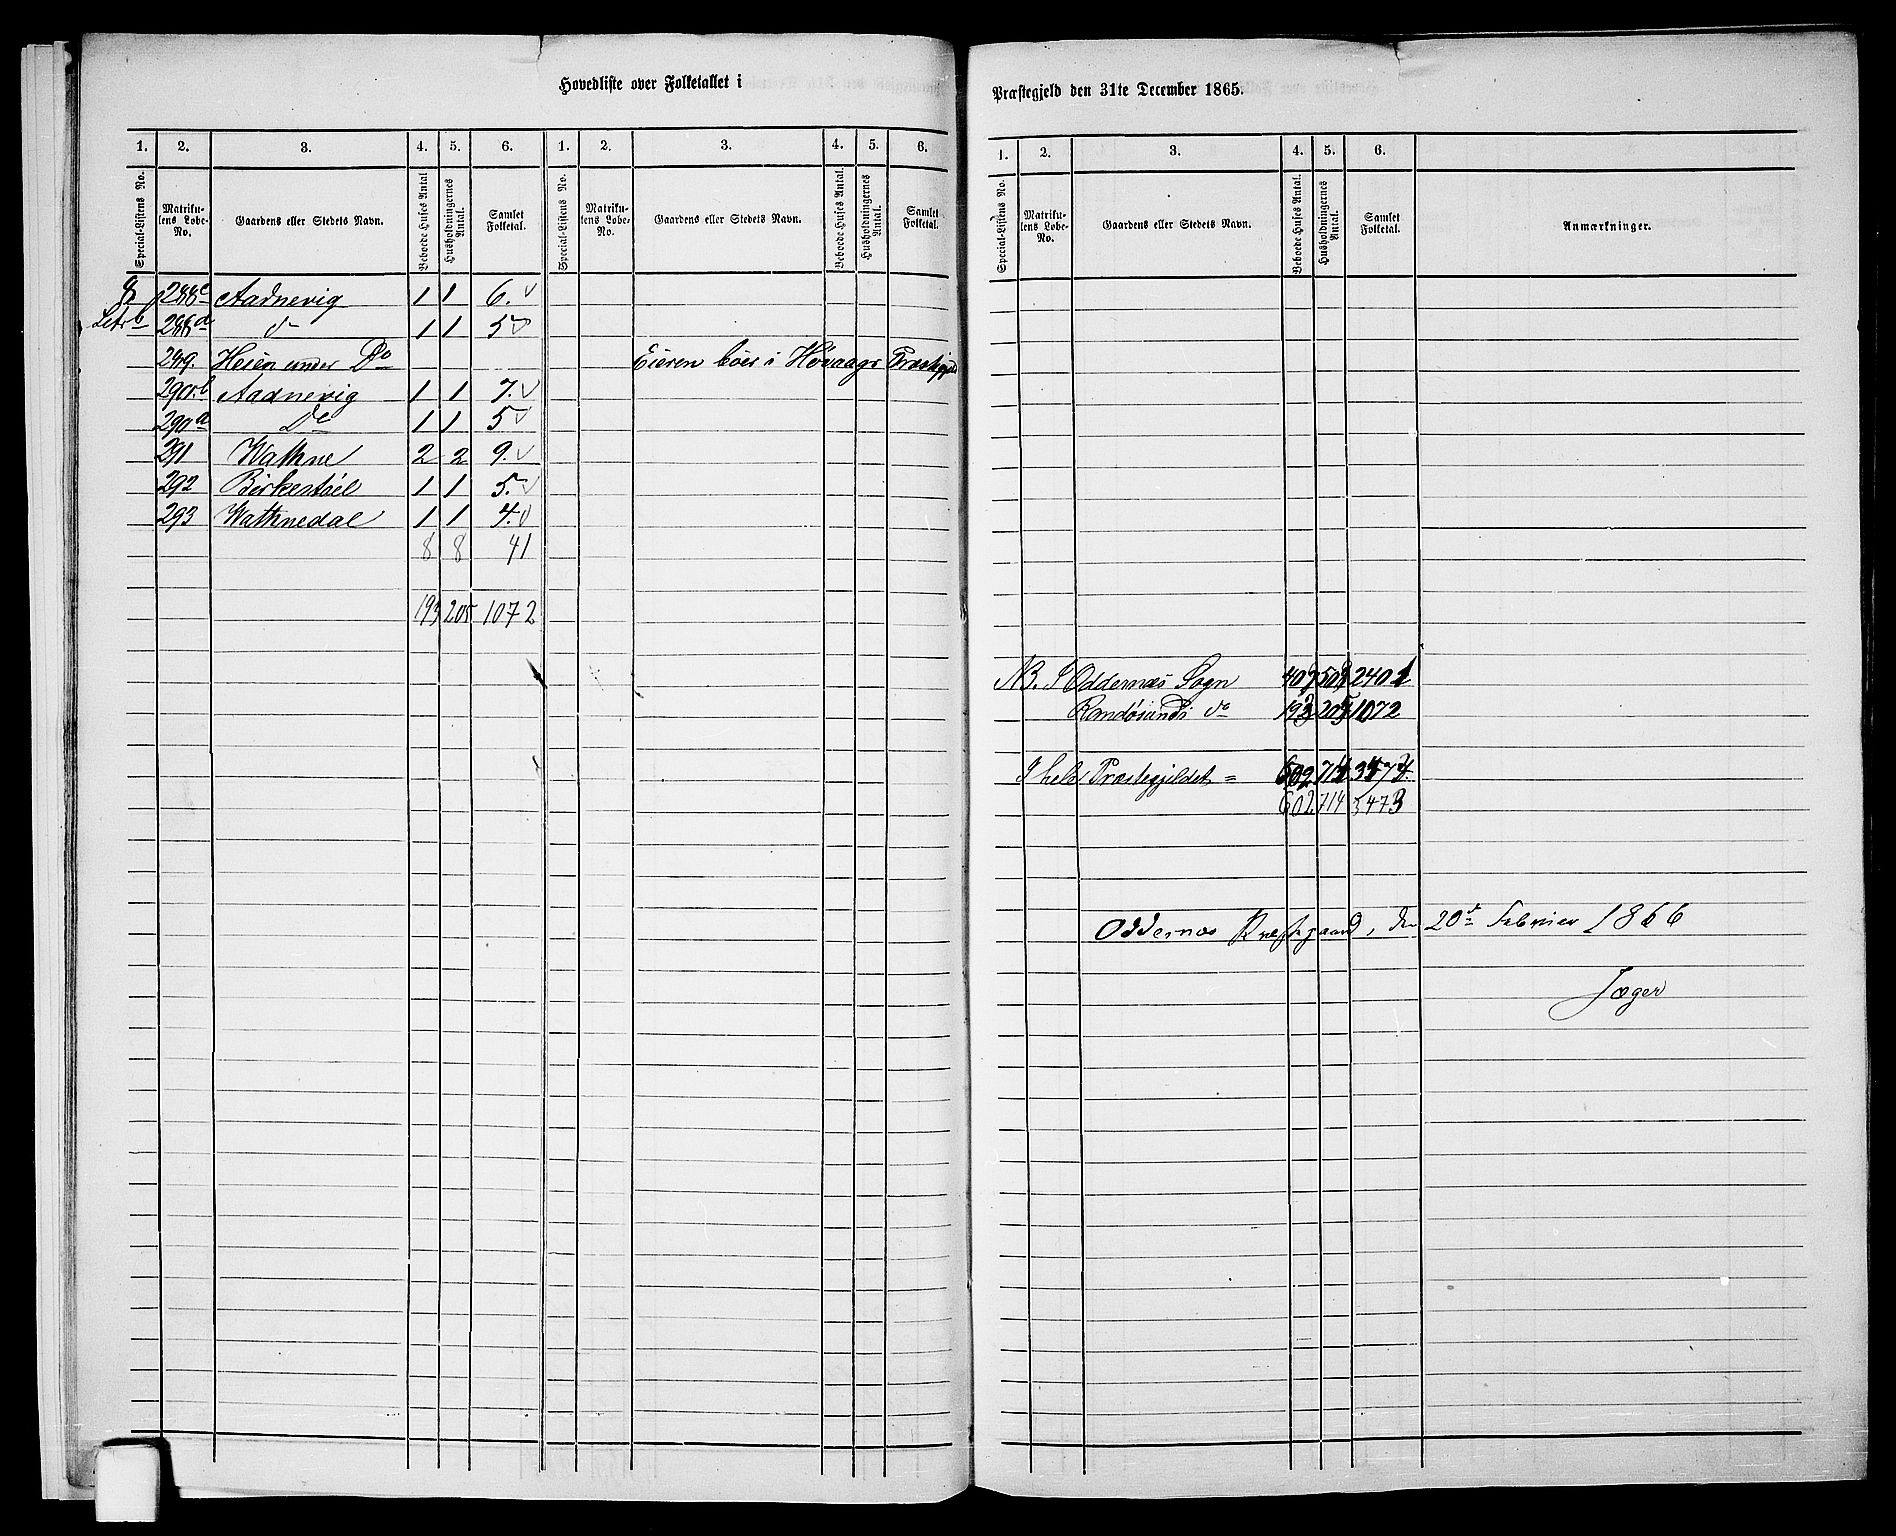 Hovedliste over Folketallet i
Præstegjeld den 31te December 1865.
1. 2. 3. 4. 5. 6. 1. 2. 3. 4. 5. 6.
Special-Listens No. Matriku-lens Løbe-No. Gaardens eller Stedets Navn. Beboede Huses Antal Husholdningernes Antal. Samlet Folketal. Special-Listens No. Matriku-lens Løbe-No. Gaardens eller Stedets Navn. Beboede Huses Antal. Husholdningernes Antal. Samlet Folketal.
8 288c Aadnevig 1 1 6.
Litr b 288d do 1 1 5
289. Heien under Do Eieren boer i Høvaags Præstegjeld
290.b Aadnevig 1 1 7.
290a Do 1 1 5
291 Wathne 2 2 9.
292 Birkestøel 1 1 5.
293 Wathnedal 1 1 4.
8 8 41
193 205 1072
1. 2. 3. 4. 5. 6.
Special-Listens No. Matriku-lens Løbe-No. Gaardens eller Stedets Navn. Beboede Huses Antal. Husholdningernes Antal. Samlet Folketal. Anmærkninger.
NB. I Oddernæs Sogn 409 509 2401
Randøsunds do 193 205 1072
I hele Præstegjeldet = 602 714 3473.
602 714 3473
Oddernæs Præstegaard, den 20de Februar 1866
Jæger